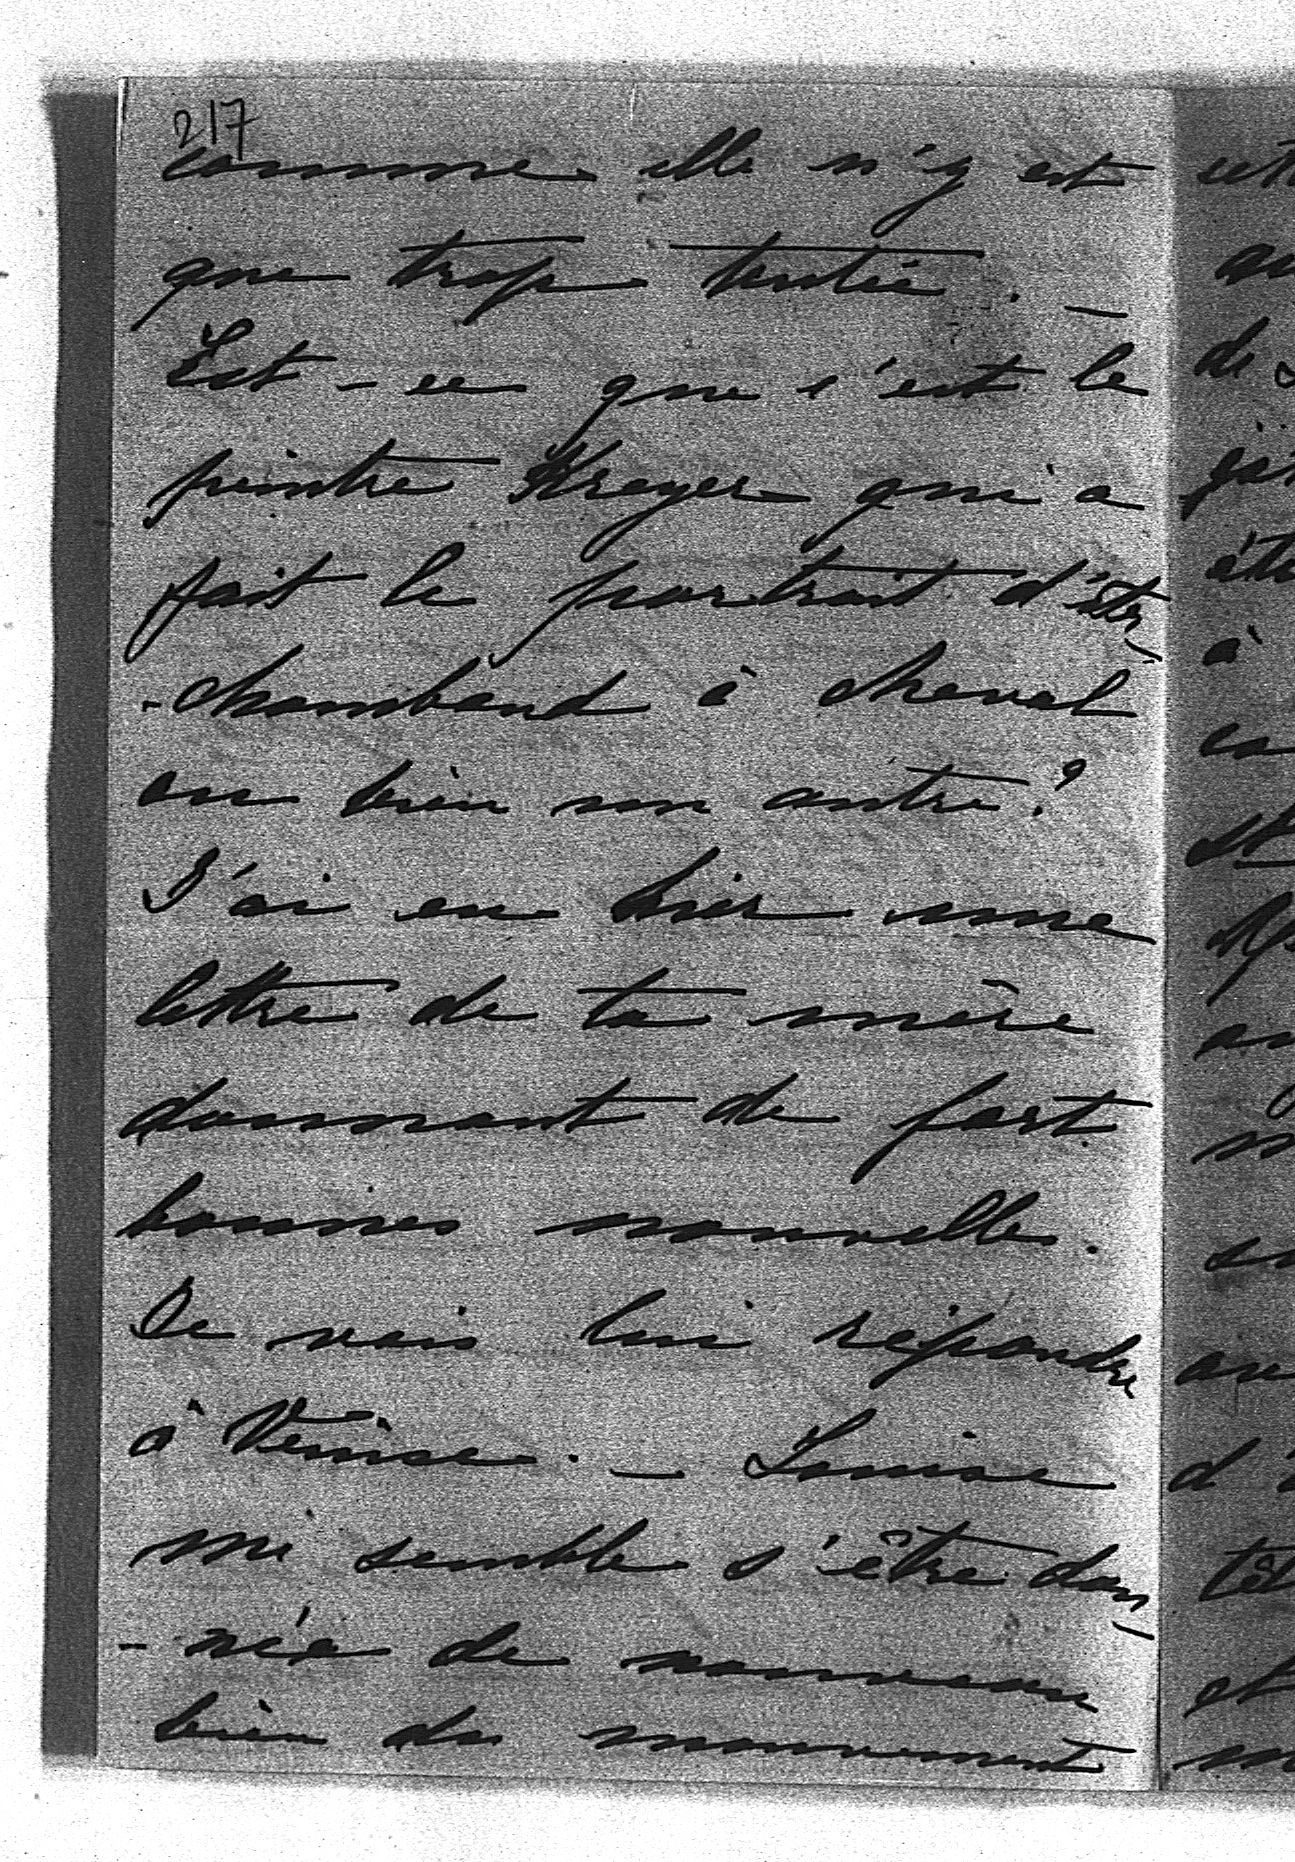 217
comme elle n'y est
que trop tentée. —
Est-ce que c'est le
peintre Kreyer qui a
fait le portrait d'Ester-
-chambaud à cheval
ou bien un autre?
J'ai eu hier une
lettre de ta mère
donnant de fort
bonnes nouvelles.
Je vais lui répondre
à Venise. — Louise
me semble s'être don-
-née de nouveau
bien du mouvement